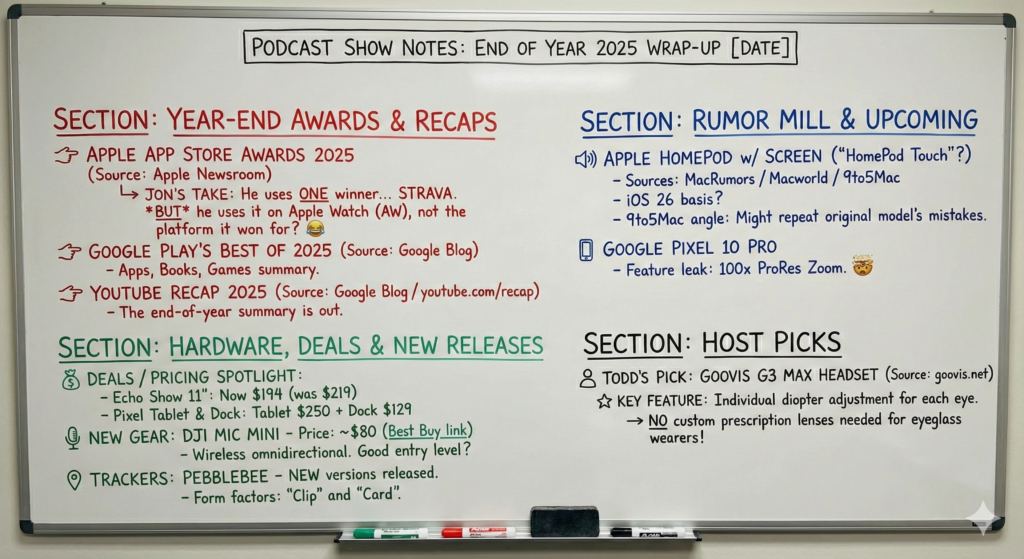 PODCAST SHOW NOTES: END OF YEAR 2025 WRAP-UP [DATE]
SECTION: YEAR-END AWARDS & RECAPS
APPLE APP STORE AWARDS 2025
(Source: Apple Newsroom)
↳ JON'S TAKE: He uses ONE winner... STRAVA.
*BUT* he uses it on Apple Watch (AW), not the
platform it won for? 😂
GOOGLE PLAY'S BEST OF 2025 (Source: Google Blog)
- Apps, Books, Games summary.
YOUTUBE RECAP 2025 (Source: Google Blog / youtube.com/recap)
- The end-of-year summary is out.
SECTION: HARDWARE, DEALS & NEW RELEASES
DEALS / PRICING SPOTLIGHT:
- Echo Show 11": Now $194 (was $219)
- Pixel Tablet & Dock: Tablet $250 + Dock $129
NEW GEAR: DJI MIC MINI - Price: ~$80 (Best Buy link)
- Wireless omnidirectional. Good entry level?
TRACKERS: PEBBLEBEE - NEW versions released.
- Form factors: "Clip" and "Card".
SECTION: RUMOR MILL & UPCOMING
APPLE HOMEPOD w/ SCREEN ("HomePod Touch"?)
- Sources: MacRumors / Macworld / 9to5Mac
- iOS 26 basis?
- 9to5Mac angle: Might repeat original model's mistakes.
GOOGLE PIXEL 10 PRO
- Feature leak: 100x ProRes Zoom. 🤯
SECTION: HOST PICKS
TODD'S PICK: GOOVIS G3 MAX HEADSET (Source: goovis.net)
☆ KEY FEATURE: Individual diopter adjustment for each eye.
→ NO custom prescription lenses needed for eyeglass
wearers!